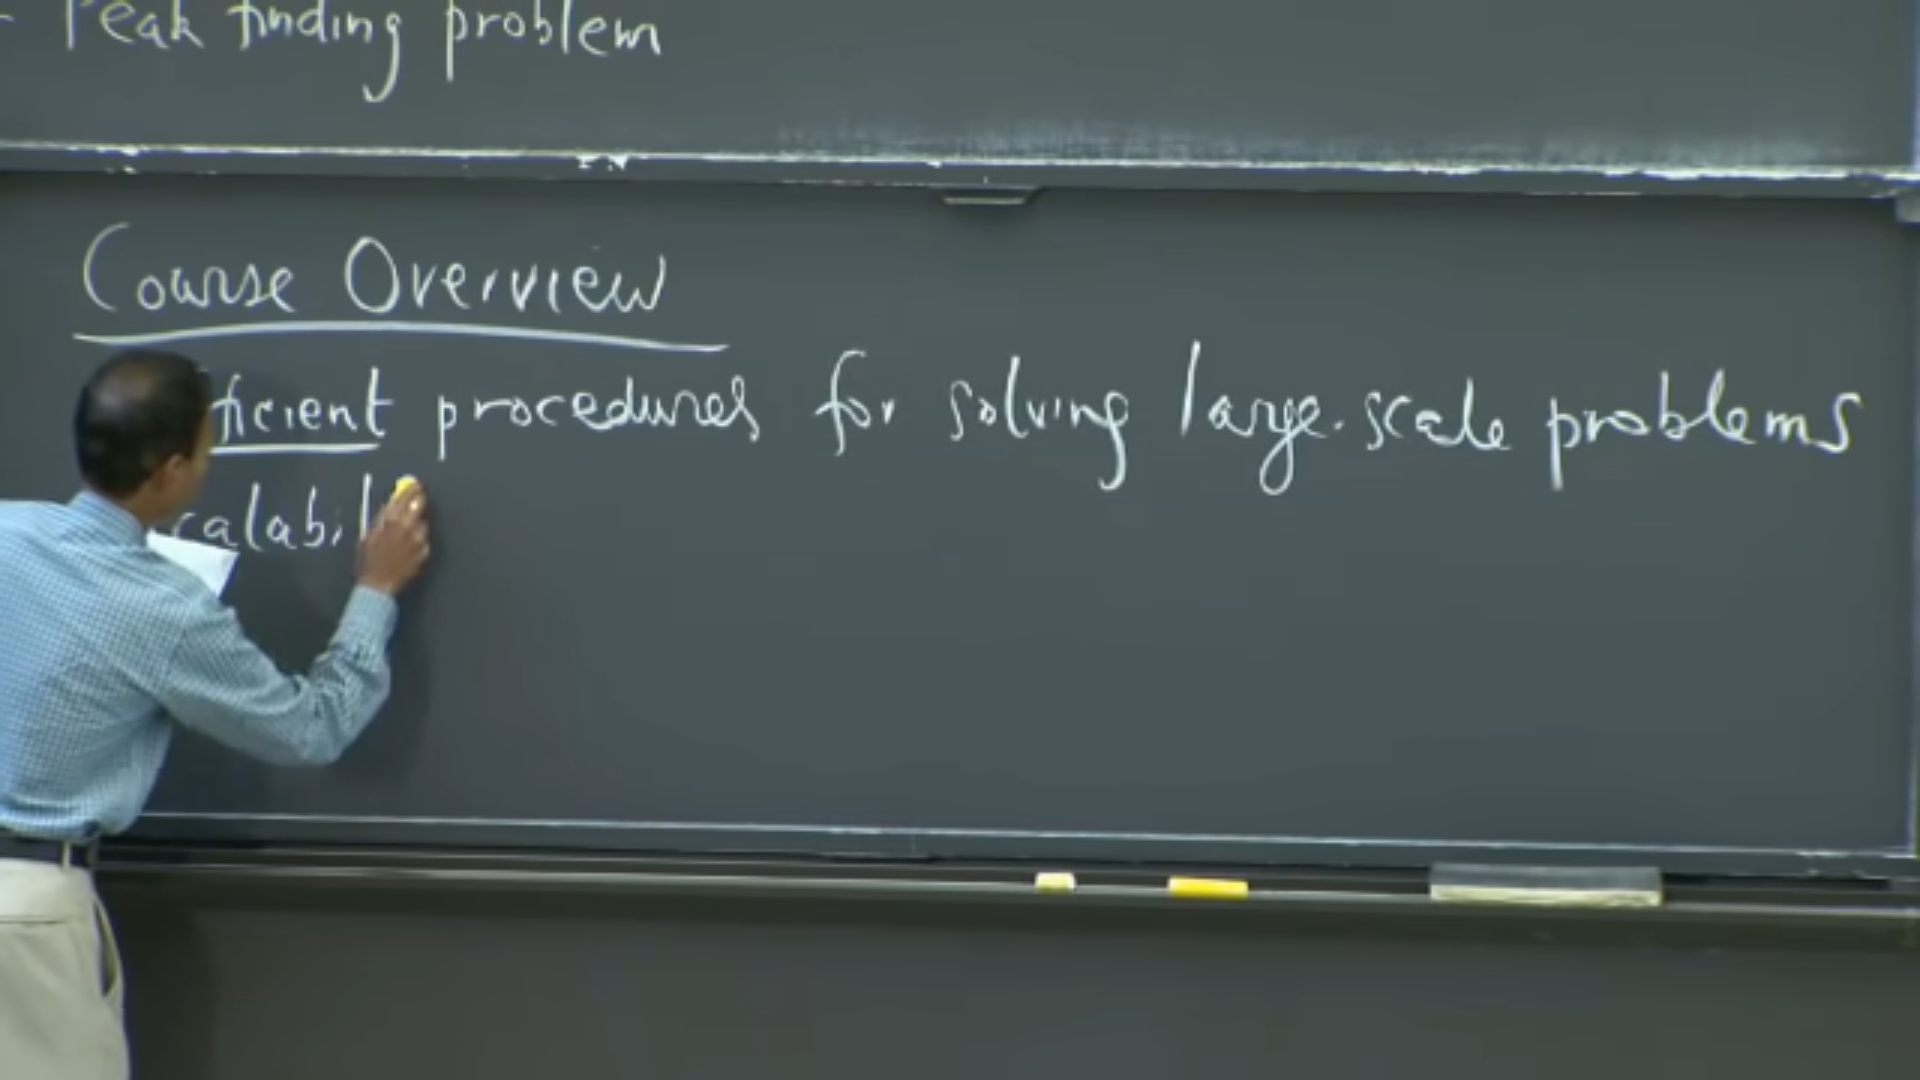 - Peak finding problem
Course Overview
ficient procedures for solving large-scale problems
calabil